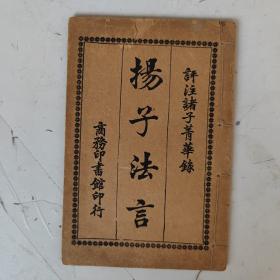 評注諸子菁華錄
揚子法言
商務印書館印行